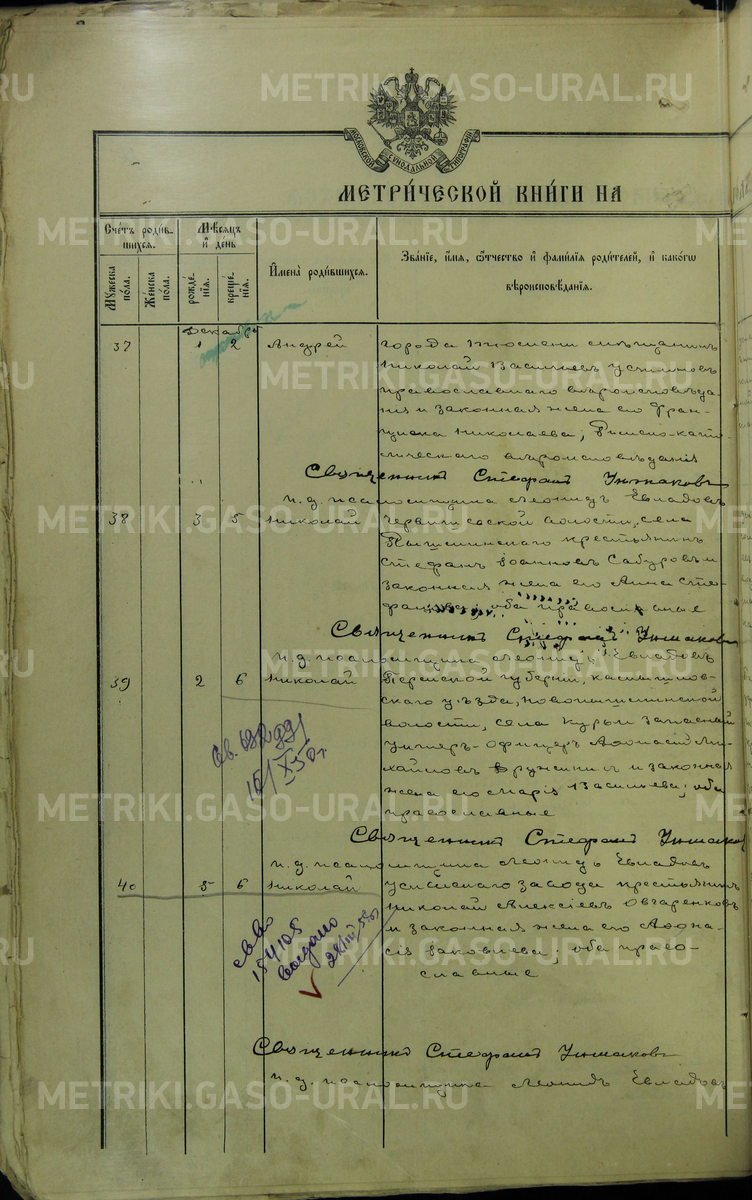 METRIKI.GASO-URAL.RU
МОСКОВСКОЙ СѴНОДАЛЬНОЙ ТИПОГРАФІИ
МЕТРИ́ЧЕСКОЙ КНИ́ГИ НА
Сче́тъ роди́в-
шихся.
Мѣ́сяцъ
и҆ де́нь
И҆мена̀ роди́вшихся.
Зва́нїе, и҆́мя, ѻ҆́тчество и҆ фами́лїя роди́телей, и҆ како́гѡ
вѣроисповѣ́данїя.
Му́жеска по́ла.
Же́нска по́ла.
рожде́нїя.
креще́нїя.
Декабрь
37 1 2 Андрей города Тюмени мѣщанинъ
Николай Васильевъ Устиновъ
православнаго вѣроисповѣда-
нія и законная жена его Фран-
Николаева, Римско-като-
лическаго вѣроисповѣданія
Священникъ Стефанъ Унжаковъ
и. д. псаломщика Леонидъ Евладовъ
38 3 5 Николай волости, села
крестьянинъ
Стефанъ Іоанновъ Сабуровъ и
законная жена его Анна Сте-
фанова; оба православные
Священникъ Стефанъ Унжаковъ
и. д. псаломщика Леонидъ Евладовъ
39 2 6 Николай Пермской губерніи, Камышлов-
скаго уѣзда, Новопышминской
волости, села Курьи запасный
унтеръ-офицеръ Аѳанасій Ми-
хайловъ и законная
жена его Марія Васильева; оба
православные
Св.
Священникъ Стефанъ Унжаковъ
и. д. псаломщика Леонидъ Евладовъ
40 5 6 Николай завода крестьянинъ
Николай Алексіевъ Овчаренковъ
и законная жена его Аѳана-
сія Іаковлева; оба право-
славные
св-во
154105
выдано
Священникъ Стефанъ Унжаковъ
и. д. псаломщика Леонидъ Евладовъ